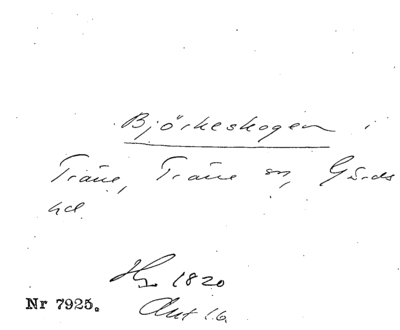 Björkeskogen i
Träne, Träne sn, Gärds
hd
1820
Nr 7925. Akt 16